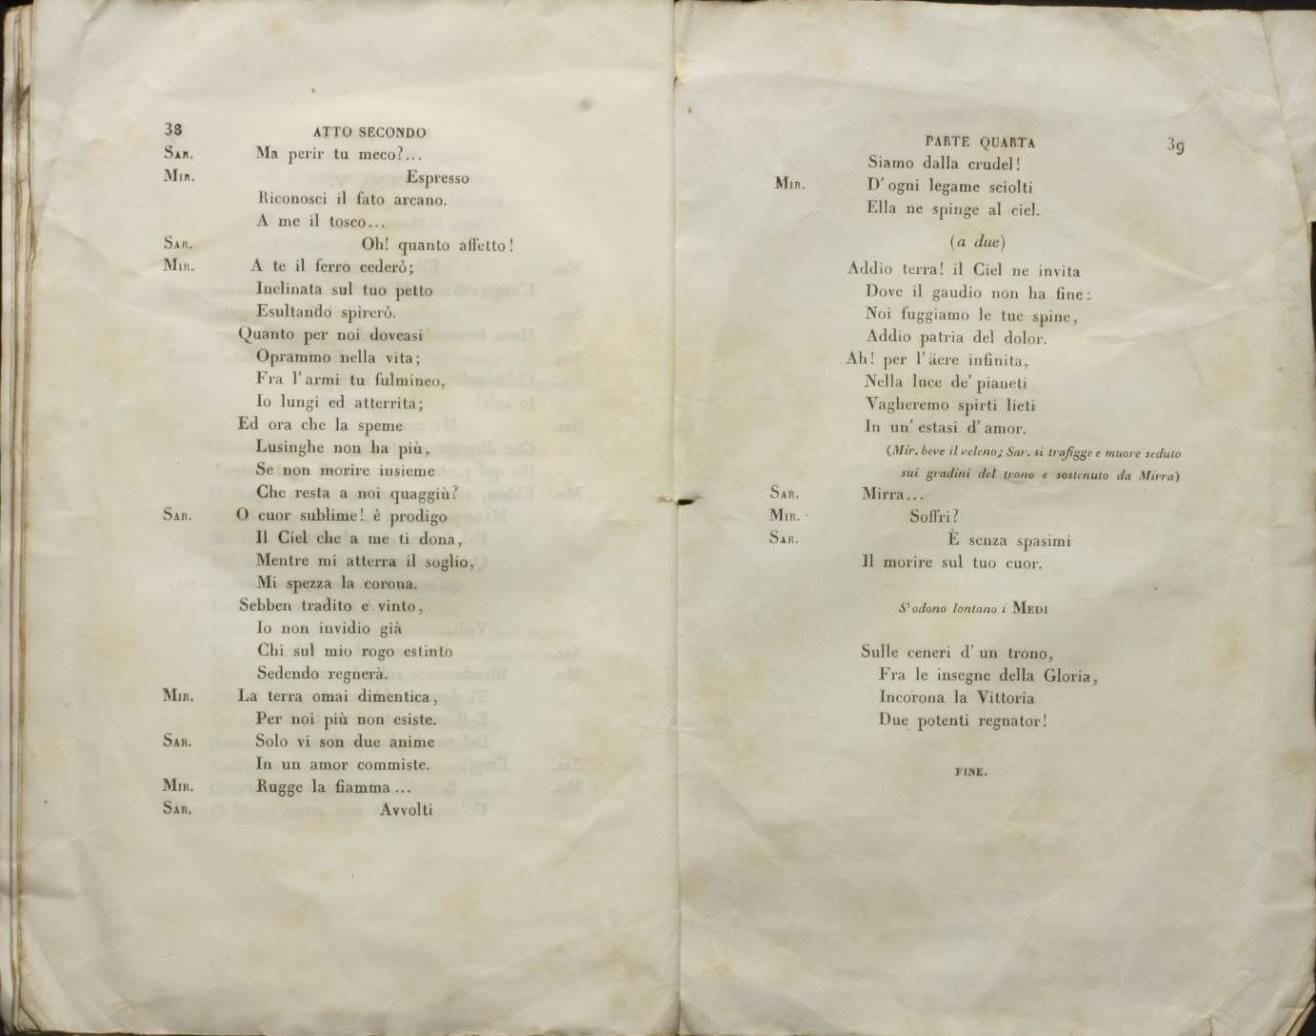 38 ATTO SECONDO
SAR. Ma perir tu meco?...
MIR. Espresso
Riconosci il fato arcano.
A me il tosco...
SAR. Oh! quanto affetto!
MIR. A te il ferro cederò;
Inclinata sul tuo petto
Esultando spirerò.
Quanto per noi doveasi
Oprammo nella vita;
Fra l'armi tu fulmineo,
Io lungi ed atterrita;
Ed ora che la speme
Lusinghe non ha più,
Se non morire insieme
Che resta a noi quaggiù?
SAR. O cuor sublime! è prodigo
Il Ciel che a me ti dona,
Mentre mi atterra il soglio,
Mi spezza la corona.
Sebben tradito e vinto,
Io non invidio già
Chi sul mio rogo estinto
Sedendo regnerà.
MIR. La terra omai dimentica,
Per noi più non esiste.
SAR. Solo vi son due anime
In un amor commiste.
MIR. Rugge la fiamma...
SAR. Avvolti
PARTE QUARTA 39
Siamo dalla crudel!
MIR. D'ogni legame sciolti
Ella ne spinge al ciel.
(a due)
Addio terra! il Ciel ne invita
Dove il gaudio non ha fine:
Noi fuggiamo le tue spine,
Addio patria del dolor.
Ah! per l'äere infinita,
Nella luce de' pianeti
Vagheremo spirti lieti
In un' estasi d'amor.
(Mir. beve il veleno; Sar. si trafigge e muore seduto
sui gradini del trono e sostenuto da Mirra)
SAR. Mirra...
MIR. Soffri?
SAR. È senza spasimi
Il morire sul tuo cuor.
S'odono lontano i MEDI
Sulle ceneri d'un trono,
Fra le insegne della Gloria,
Incorona la Vittoria
Due potenti regnator!
FINE.